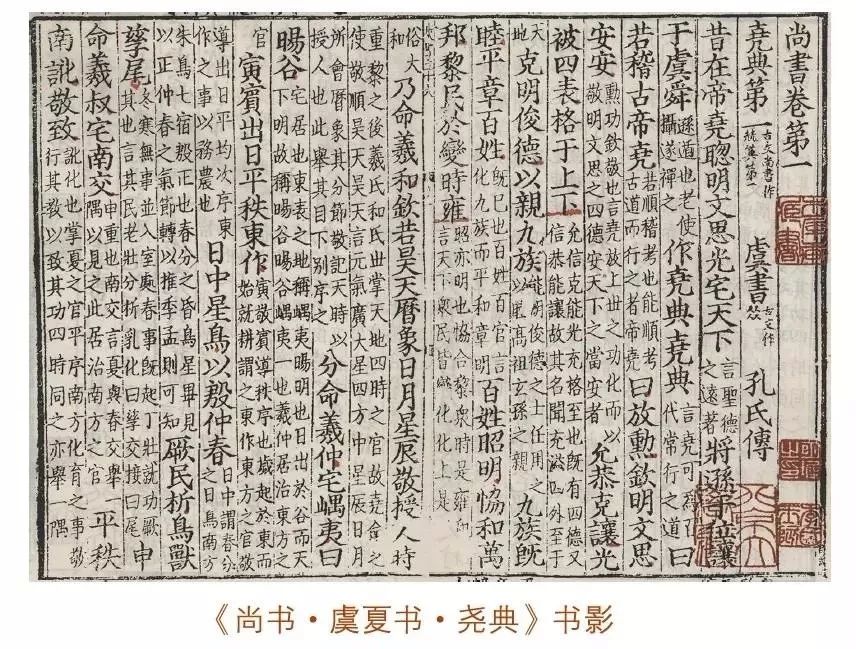 尚書卷第一
堯典第一 古文尚書作 第一 虞書 古文作 孔氏傳
昔在帝堯聰明文思光宅天下 言聖德之遠著 將遜于位讓
于虞舜 遜遁也老使攝遂禪之 作堯典堯典 言堯可爲代常行之道 曰
若稽古帝堯 若順稽考也能順考古道而行之者帝堯 曰放勳欽明文思
安安 勳功欽敬也言堯放上世之功化而以敬明文思之四德安天下之當安者 允恭克讓光
被四表格于上下 允信克能光充格至也既有四德又信恭能讓故其名聞充溢四外至于
天地 克明俊德以親九族 能明俊德之士任用之以睦高祖玄孫之親 九族既
睦平章百姓 既已也百姓百官言化九族而平和章明 百姓昭明恊和萬
邦黎民於變時雍 昭亦明也協合黎衆時是雍和言天下衆民皆變化化上是
俗大和 乃命羲和欽若昊天曆象日月星辰敬授人時
重黎之後羲氏和氏世掌天地四時之官故堯命之使敬順昊天昊天言元氣廣大星四方中星辰日月
所會曆象其分節敬記天時以授人也此舉其目下別序之 分命羲仲宅嵎夷曰
暘谷 宅居也東表之地稱嵎夷暘明也日出於谷而天下明故稱暘谷暘谷嵎夷一也羲仲居治東方之
官 寅賓出日平秩東作 寅敬賓導秩序也歲起於東而始就耕謂之東作東方之官敬
導出日平均次序東作之事以務農也 日中星鳥以殷仲春 日中謂春分之日鳥南方
朱鳥七宿殷正也春分之昏鳥星畢見以正仲春之氣節轉以推季孟則可知 厥民析鳥獸
孳尾 冬寒無事並入室處春事既起丁壯就功厥其也言其民老壯分析乳化曰孳交接曰尾 申
命羲叔宅南交 申重也南交言夏與春交舉一隅以見之此居治南方之官 平秩
南訛敬致 訛化也掌夏之官平序南方化育之事敬行其教以致其功四時同之亦舉一隅
《尚书·虞夏书·尧典》书影